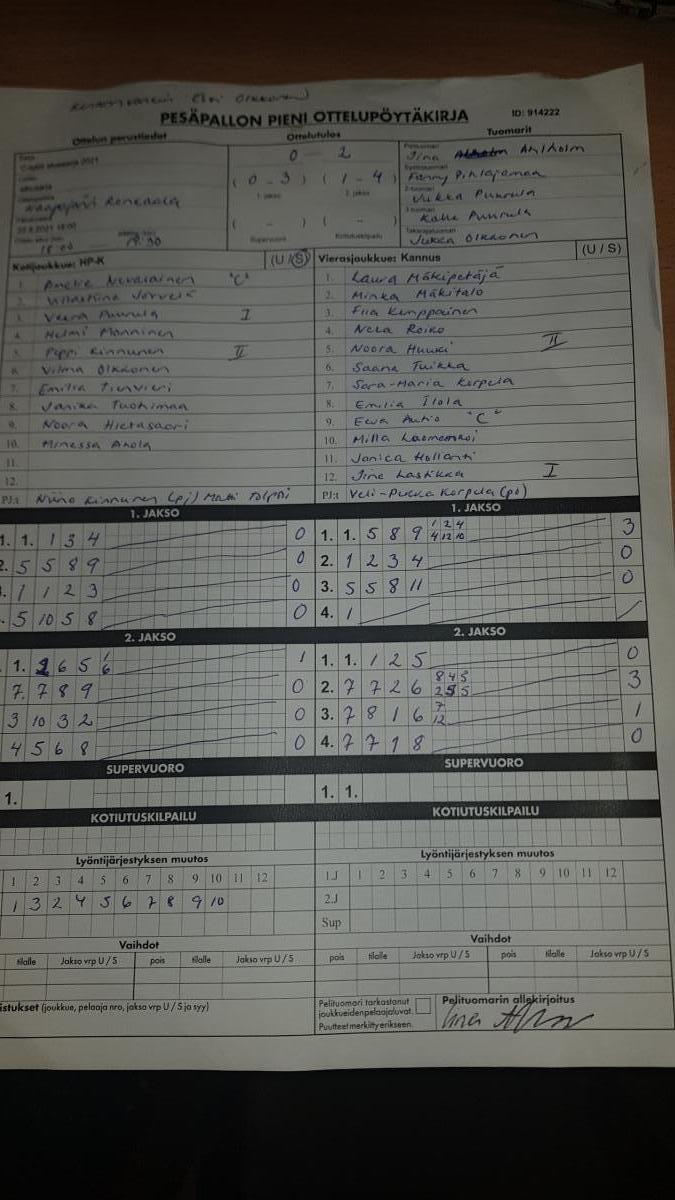 PESÄPALLON PIENI OTTELUPÖYTÄKIRJA ID: 914222
Ottelun perustiedot Ottelutulos Tuomarit
0 - 2
(0-3) (1-4)
1. jakso 2. jakso
( - ) ( - )
Supervuoro Kotiutuskilpailu
18.00 19.30
Jina Ahlholm
Fanny Pihlajamaa
Jukka Puurula
Kalle Puurula
Jukka Olkkonen
Kotijoukkue: HP-K (U / S)
1. Amelie Nevalainen "C"
2.
3. Veera Puurula I
4. Helmi Manninen
5. Peppi Kinnunen II
6. Vilma Olkkonen
7. Emilia
8. Janika Tuohimaa
9. Noora Hietasaari
10. Minessa Ahola
11.
12.
PJ:t Niino Kinnunen (pj) Matti
Vierasjoukkue: Kannus (U / S)
1. Laura Mäkipetäjä
2. Minka Mäkitalo
3. Fiia Kemppainen
4. Neea Roiko
5. Noora Huuki II
6. Saana Tuikka
7. Sara-Maria Korpela
8. Emilia Ilola
9. Eeva Autio "C"
10. Milla
11. Janica Hollanti
12. Jine Lastikka I
PJ:t Veli-Pekka Korpela (pj)
1. JAKSO
1. 1. 1 3 4 0
2. 5 5 8 9 0
1 1 2 3 0
5 10 5 8 0
1. JAKSO
1. 1. 5 8 9 1 2 4 3
4 12 10
2. 1 2 3 4 0
3. 5 5 8 11 0
4. 1
2. JAKSO
1. 2 6 5 1 1
6
7. 7 8 9 0
3 10 3 2 0
4 5 6 8 0
2. JAKSO
1. 1. 1 2 5 0
2. 7 7 2 6 8 4 5 3
2 5 5
3. 7 8 1 6 7 1
12
4. 7 7 1 8 0
SUPERVUORO
1.
SUPERVUORO
1. 1.
KOTIUTUSKILPAILU
KOTIUTUSKILPAILU
Lyöntijärjestyksen muutos
1 2 3 4 5 6 7 8 9 10 11 12
1 3 2 4 5 6 7 8 9 10
Lyöntijärjestyksen muutos
1.J 1 2 3 4 5 6 7 8 9 10 11 12
2.J
Sup
Vaihdot
tilalle Jakso vrp U / S pois tilalle Jakso vrp U / S
Vaihdot
pois tilalle Jakso vrp U / S pois tilalle Jakso vrp U / S
istukset (joukkue, pelaaja nro, jakso vrp U / S ja syy)
Pelituomari tarkastanut
joukkueiden pelaajaluvat.
Puutteet merkitty erikseen.
Pelituomarin allekirjoitus